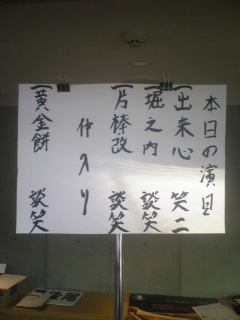 本日の演目
一出来心 笑二
一堀之内 談笑
一片棒改 談笑
仲入り
一黄金餅 談笑